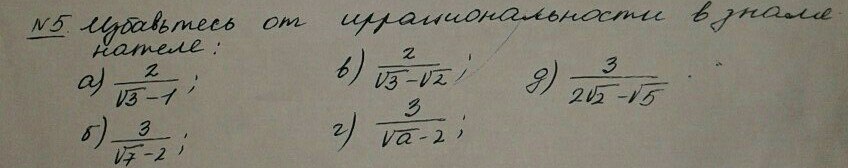 №5. Избавьтесь от иррациональности в знаме-
нателе:
а) 2/(√3-1); в) 2/(√3-√2); д) 3/(2√2-√5)
б) 3/(√7-2); г) 3/(√a-2);